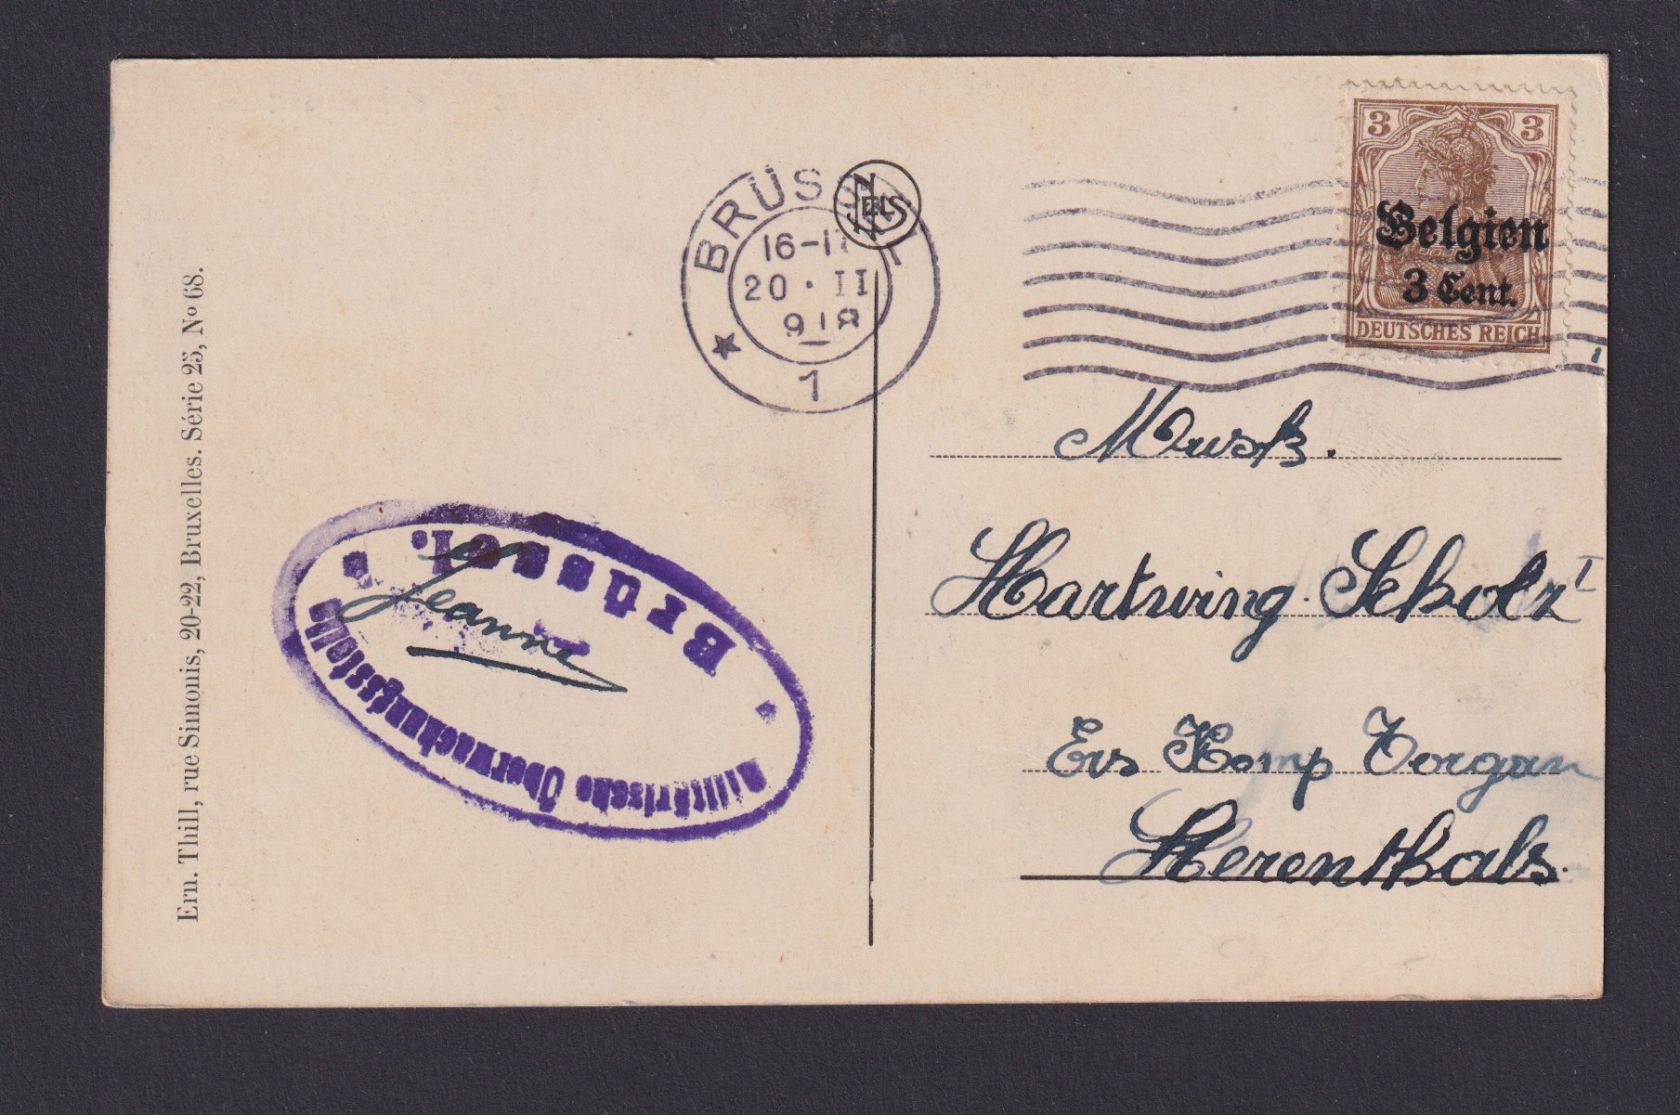 BRÜSSEL
16-17
20·II
918
1
NELS
3 3
Belgien
3 Cent.
DEUTSCHES REICH
Ern. Thill, rue Simonis, 20-22, Bruxelles. Série 25, No 68.
Militärische Überwachungsstelle
Brüssel.
Jeanne
Musk.
Hartwing Scholz I
Ers Komp Torgau
Herenthals.